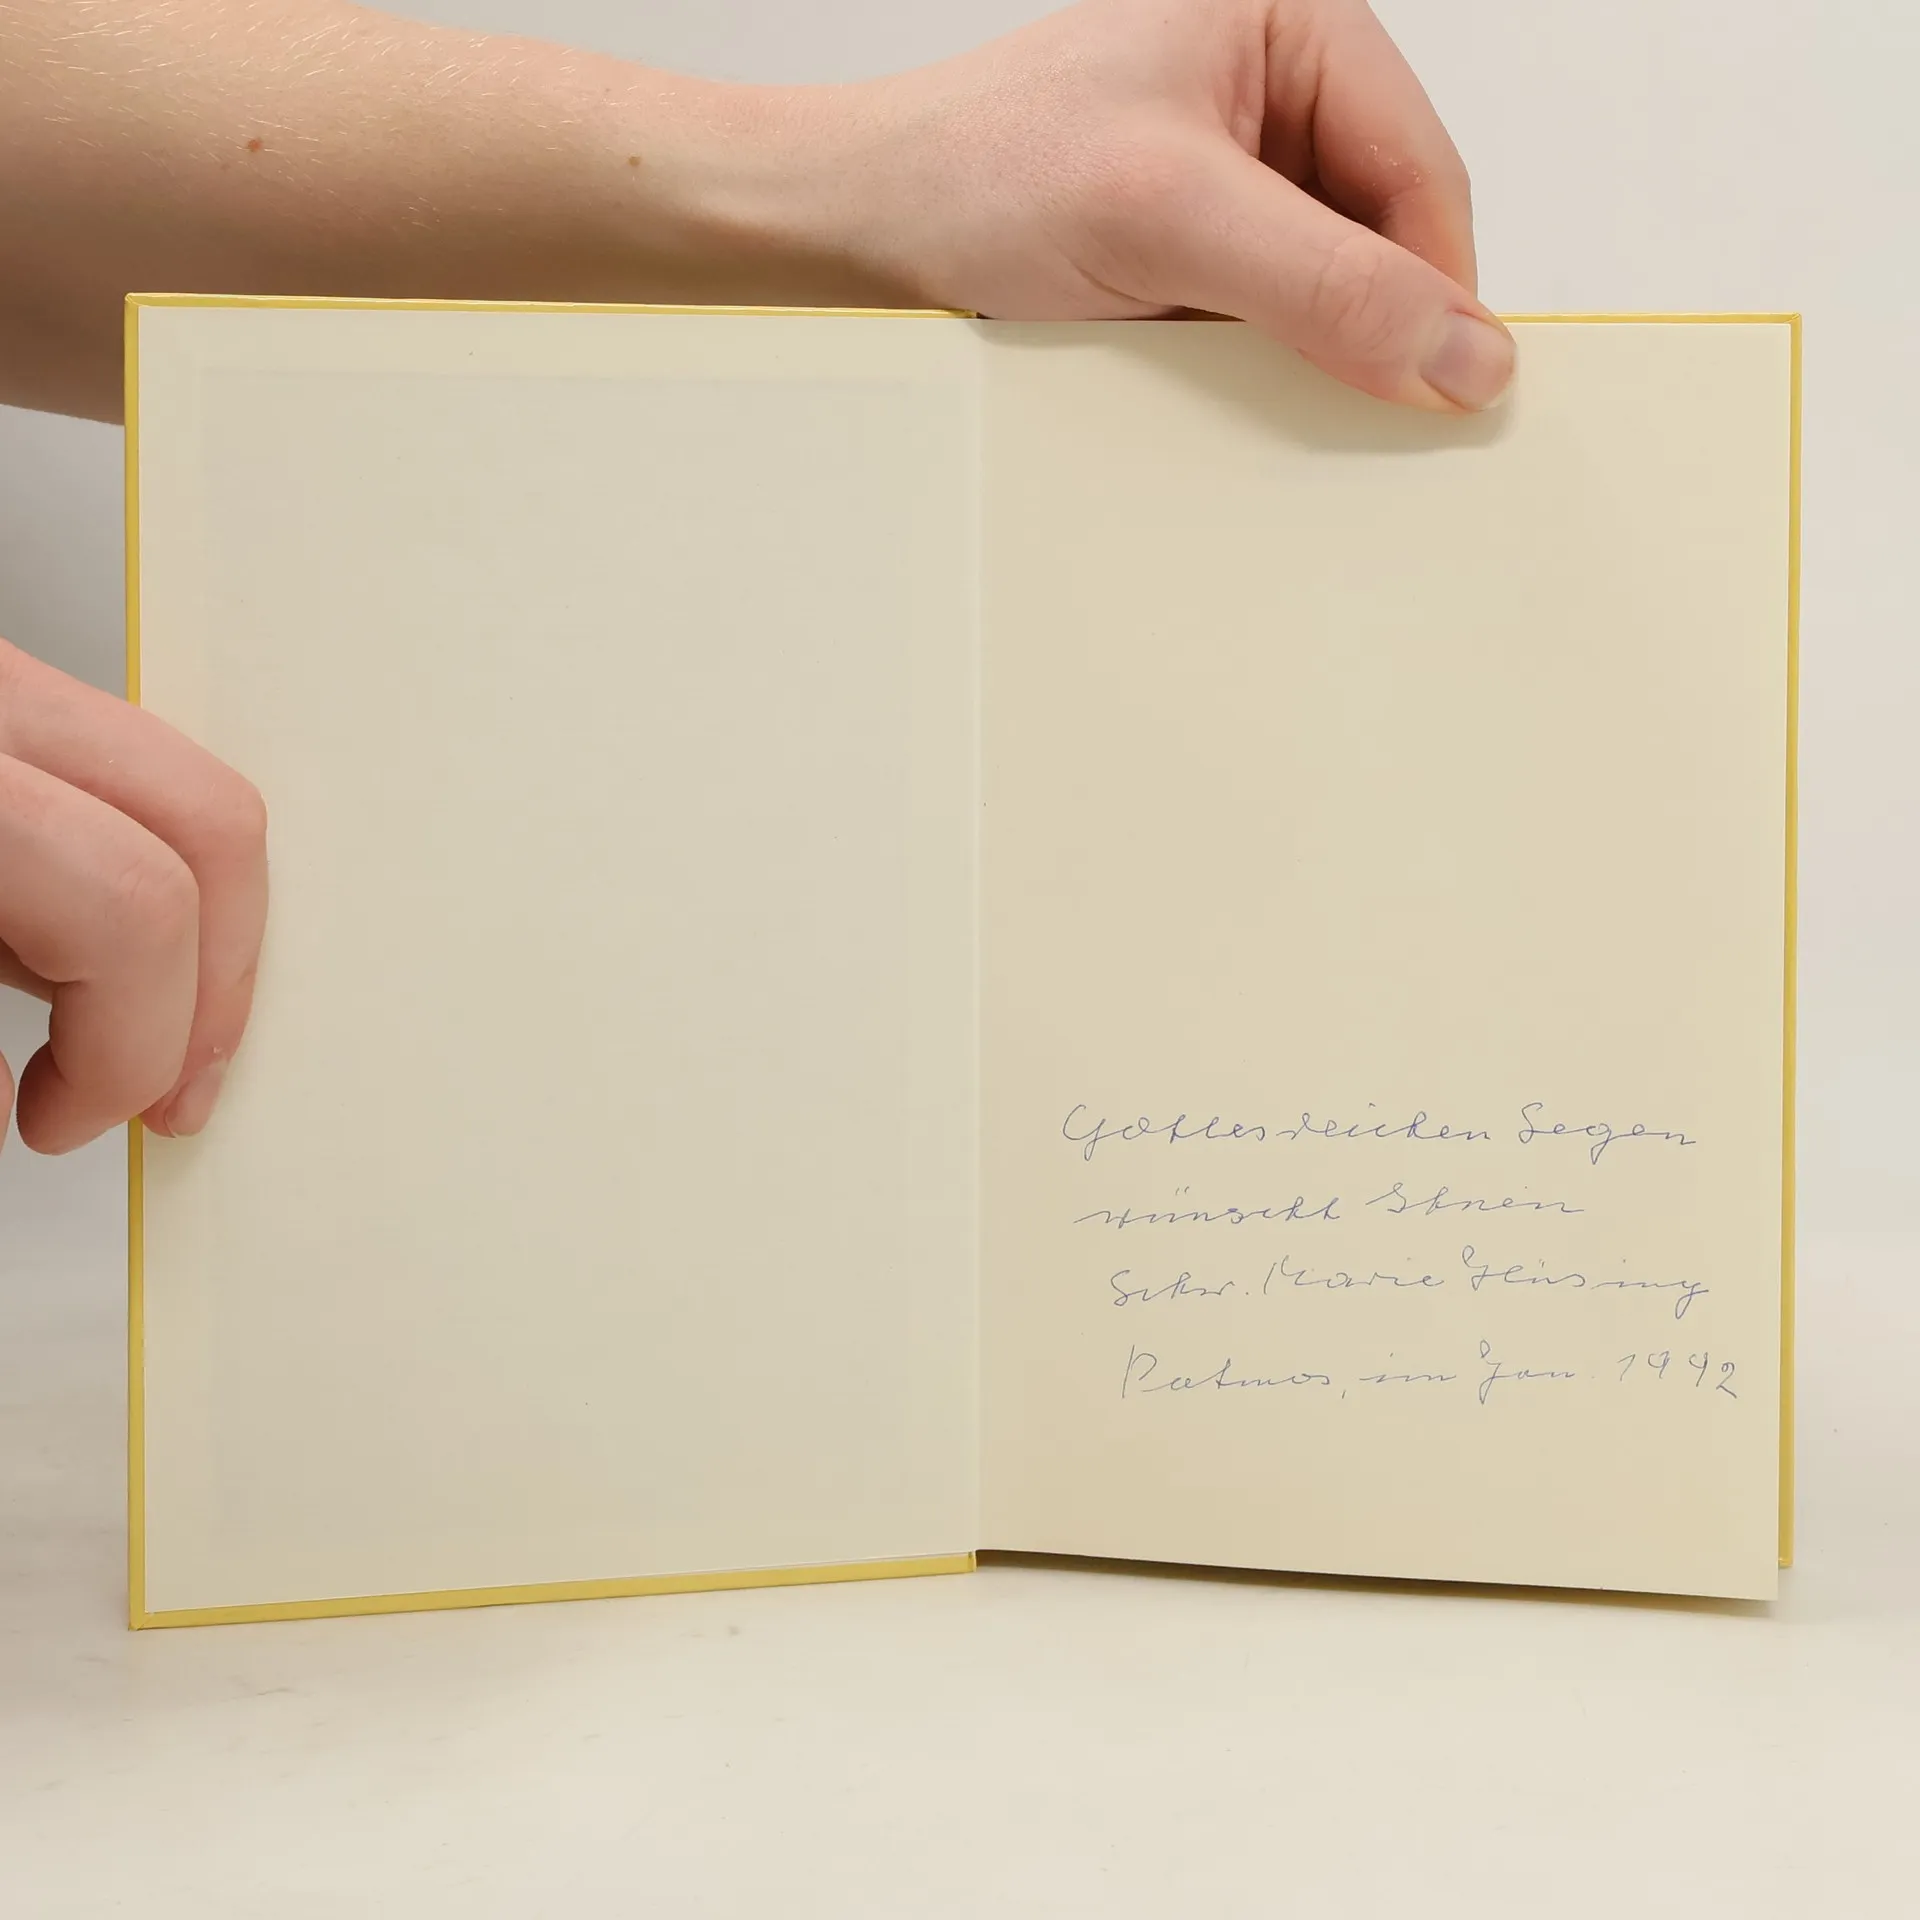 Gottesreichen Segen
wünscht Ihnen
Schw. Marie Hüsing
Patmos, im Jan. 1992